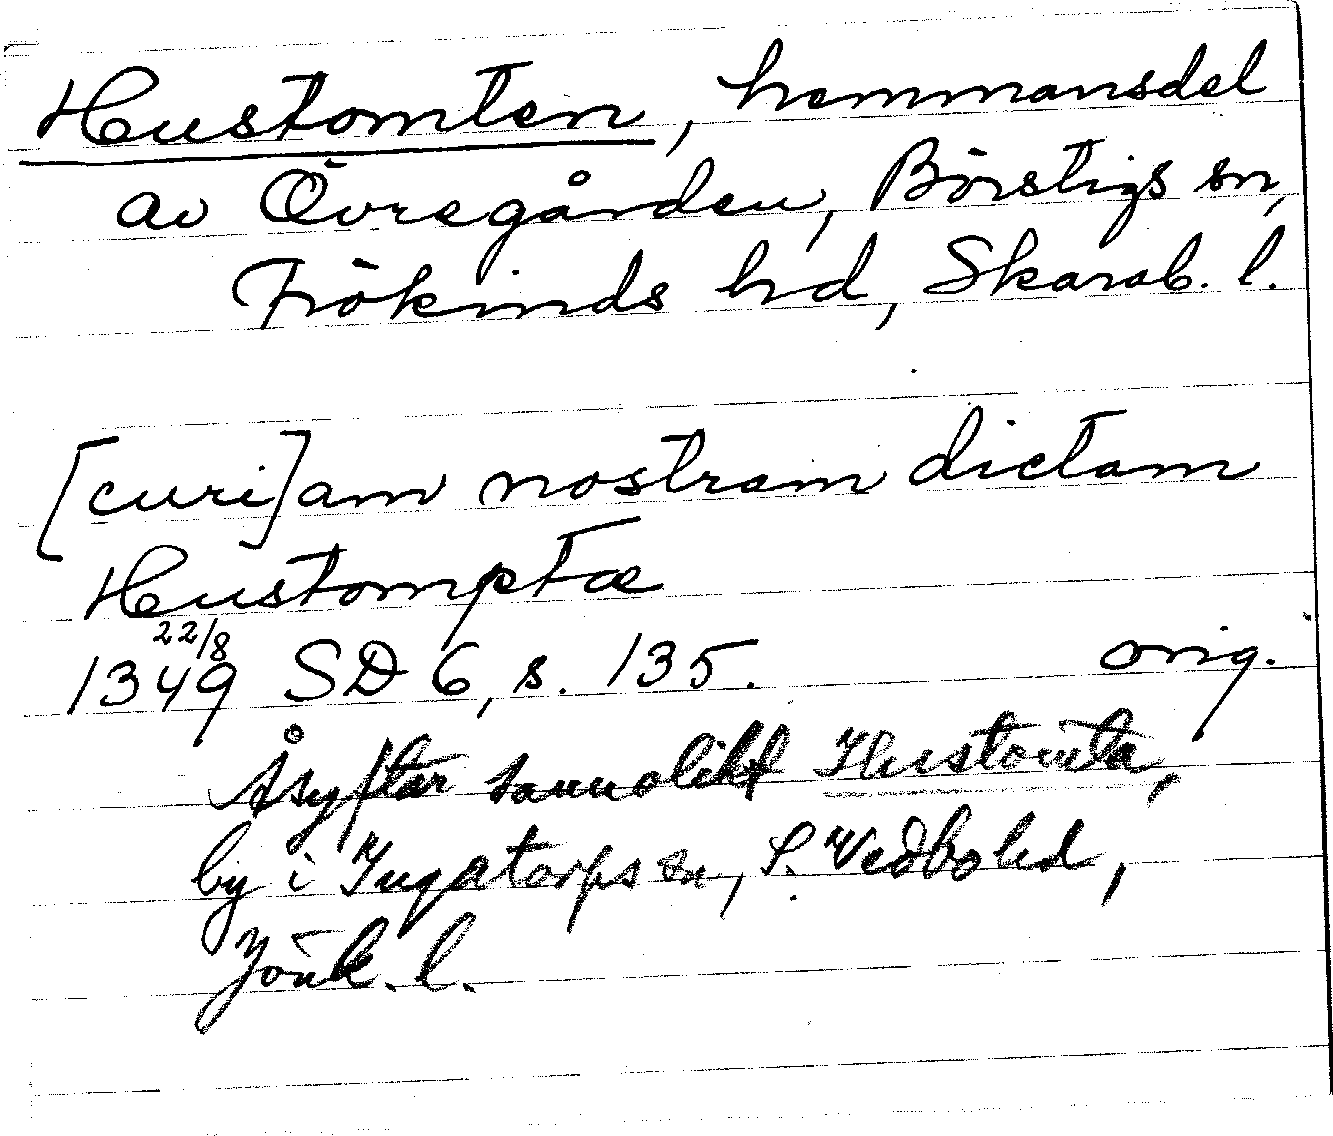 Hustomten, hemmansdel
av Övregården, Börstigs sn,
Frökinds hd, Skarab. l.
[curi]am nostram dictam
Hustomptæ
22/8
1349 SD 6, s. 135. orig.
Åsyftar sannolikt Hustomta,
by i Ingatorps sn, S. Vedbo hd,
Jönk. l.